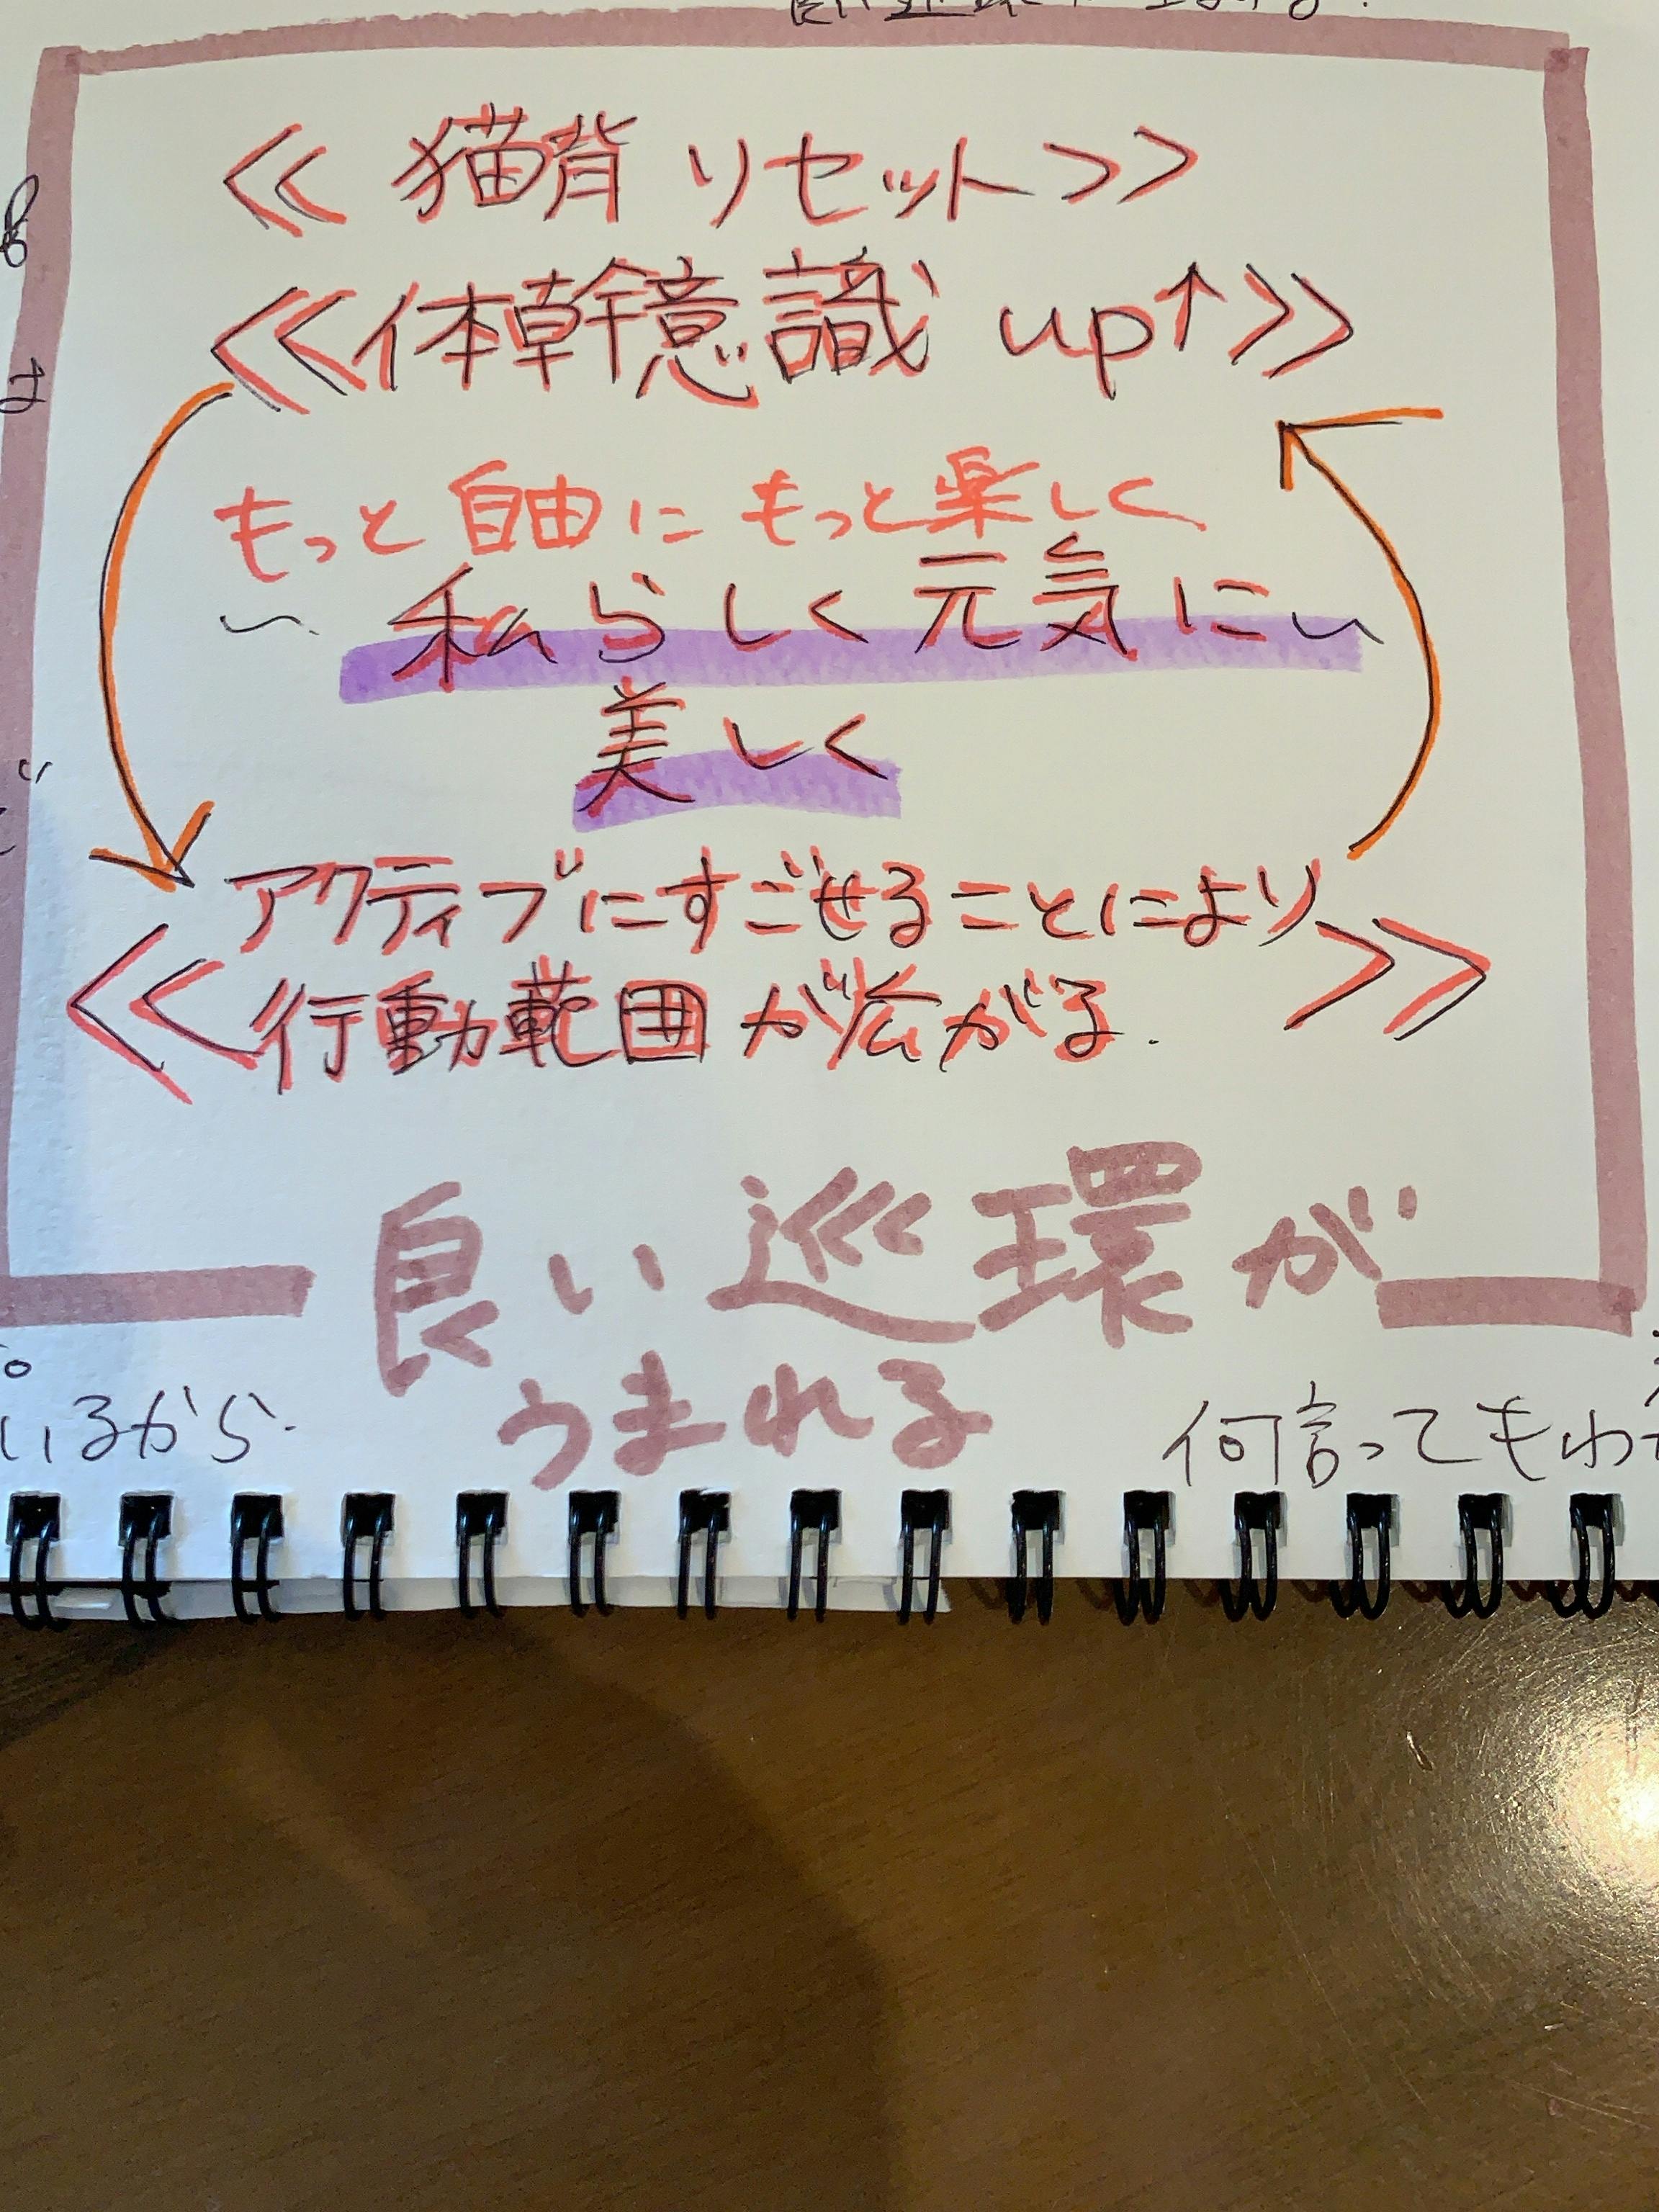 ≪ 猫背リセット ≫
≪体幹意識 up↑≫
もっと自由にもっと楽しく
〜 私らしく元気に 〜
美しく
アクティブにすごせることにより
≪行動範囲が広がる. ≫
良い巡環が
うまれる
いるから.
何言ってもわ